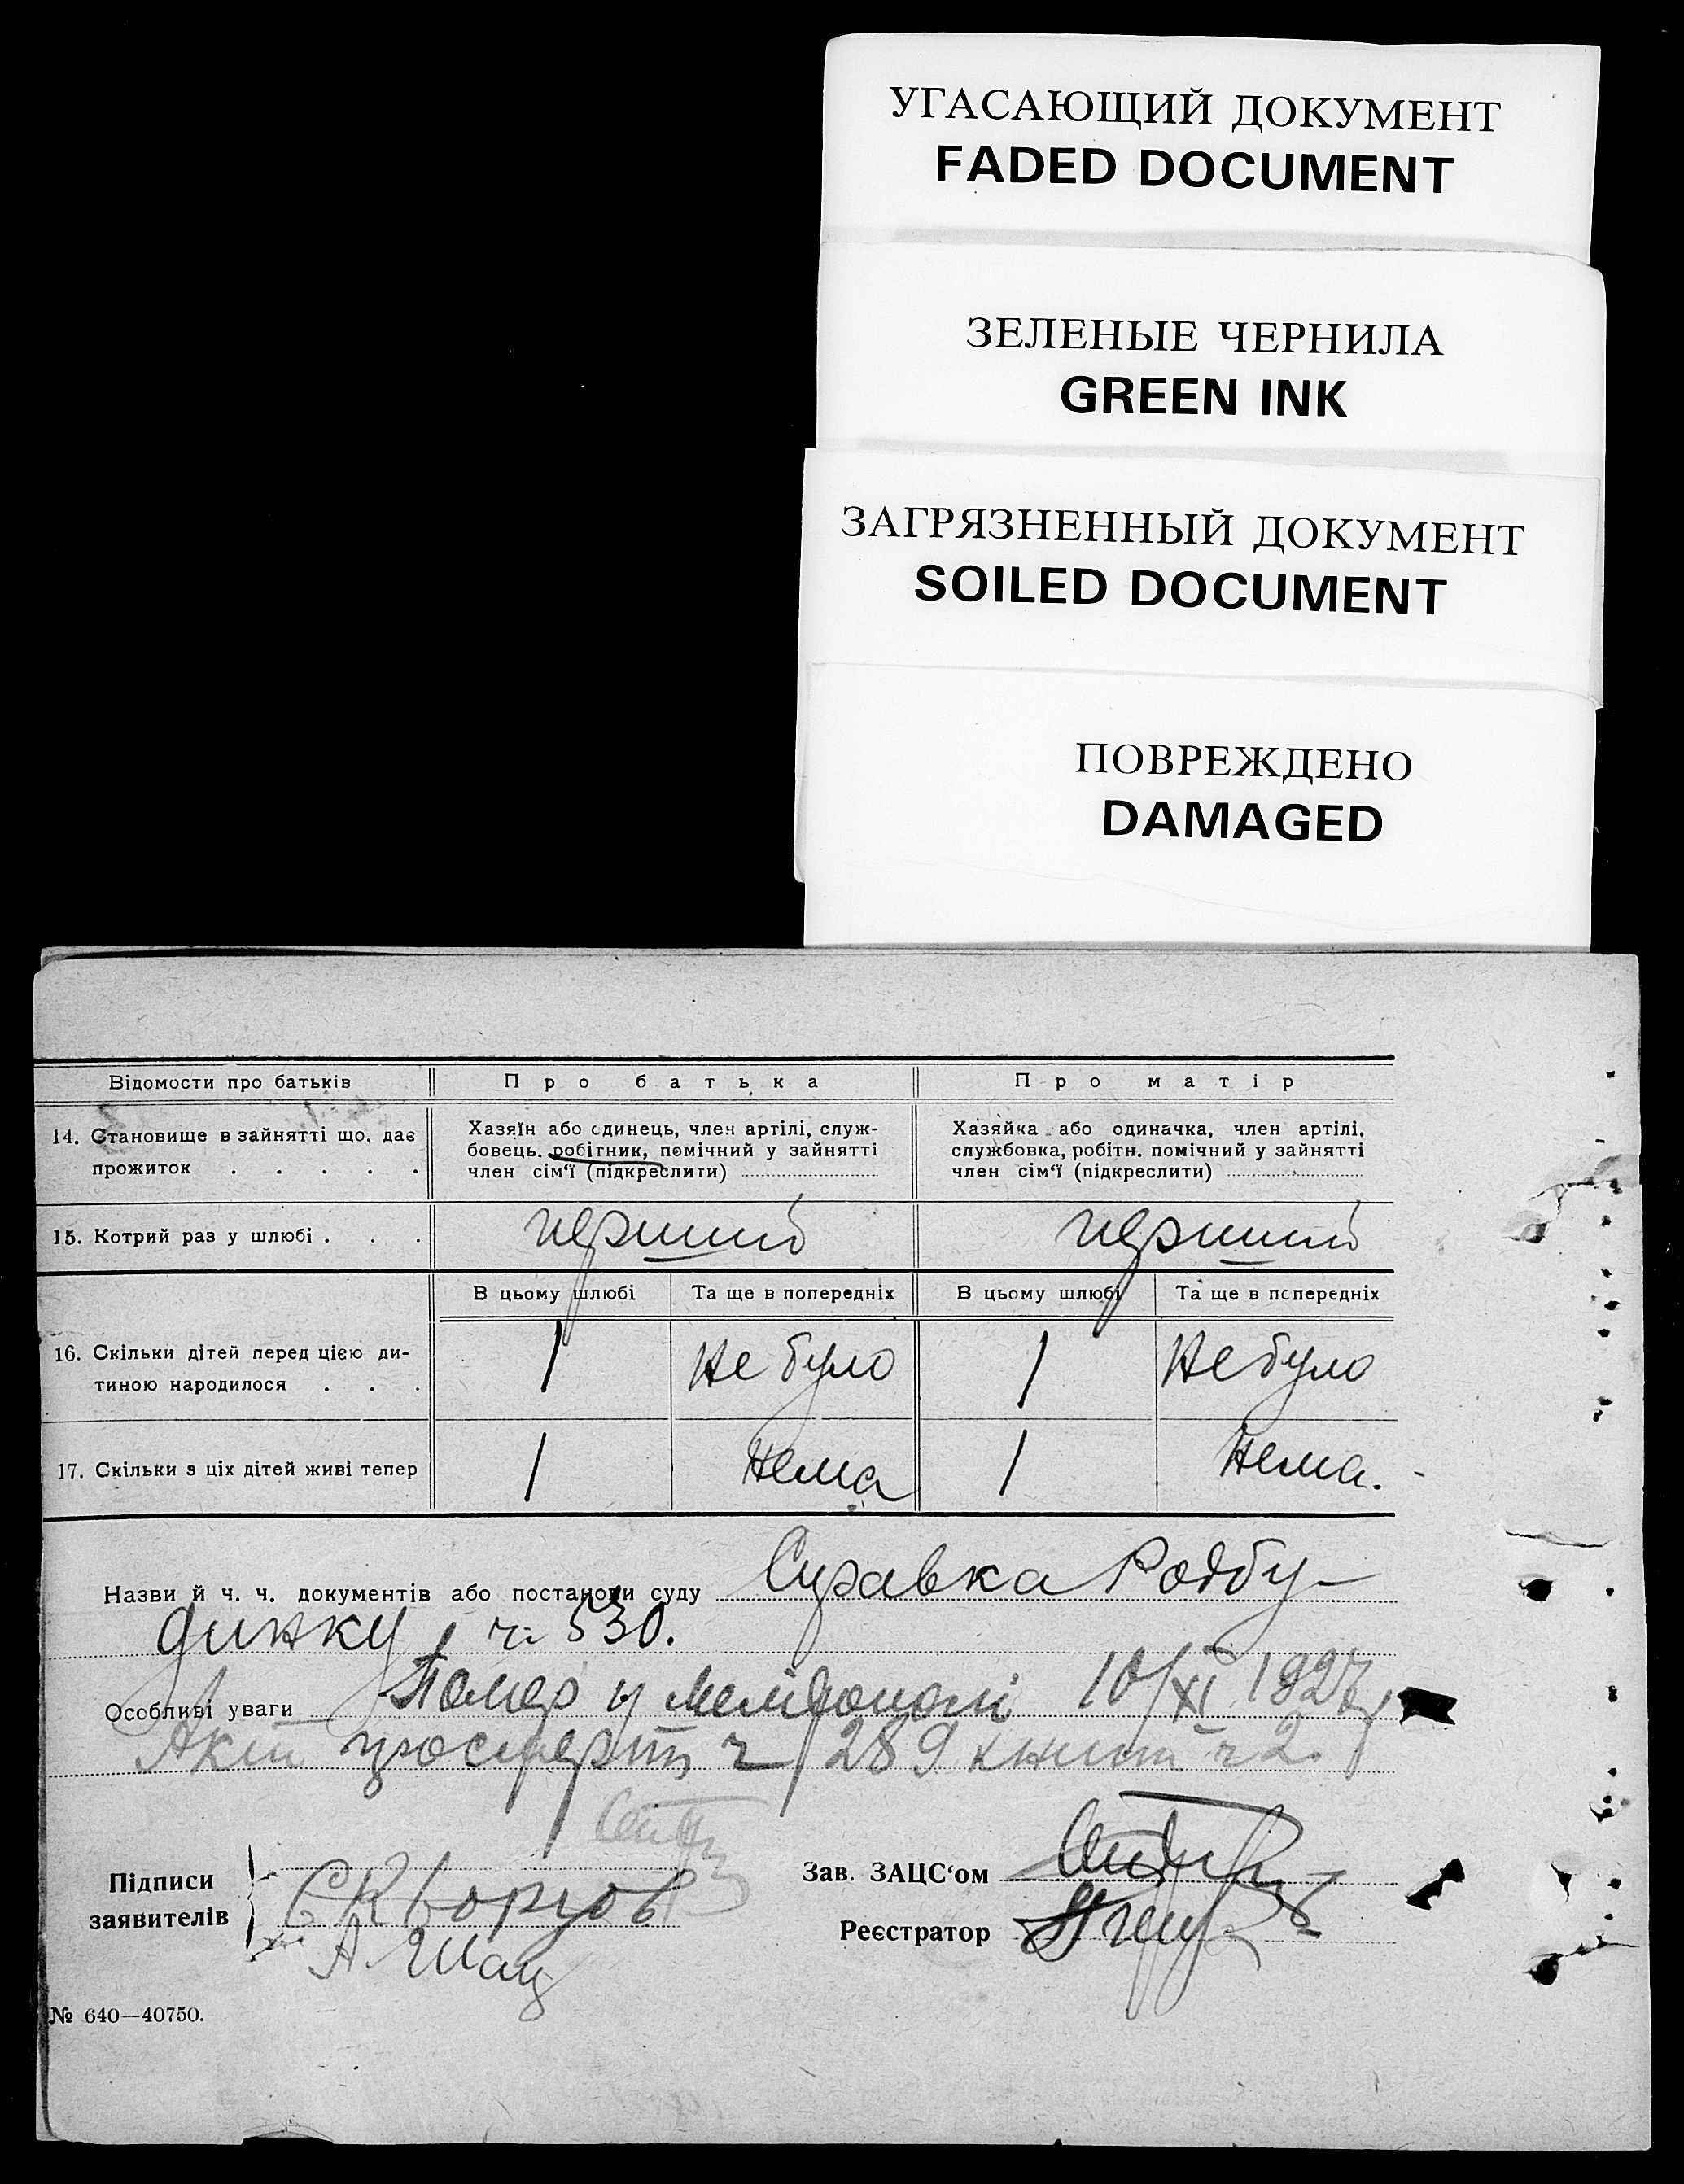 УГАСАЮЩИЙ ДОКУМЕНТ
FADED DOCUMENT
ЗЕЛЕНЫЕ ЧЕРНИЛА
GREEN INK
ЗАГРЯЗНЕННЫЙ ДОКУМЕНТ
SOILED DOCUMENT
ПОВРЕЖДЕНО
DAMAGED
Відомости про батьків Про батька Про матір
14. Становище в зайнятті що, дає прожиток . . . . .
Хазяїн або одинець, член артілі, служ-
бовець, робітник, помічний у зайнятті
член сім'ї (підкреслити)
Хазяйка або одиначка, член артілі,
службовка, робітн. помічний у зайнятті
член сім'ї (підкреслити)
15. Котрий раз у шлюбі . . . перший перший
В цьому шлюбі Та ще в попередніх В цьому шлюбі Та ще в попередніх
16. Скільки дітей перед цією ди-
тиною народилося . . . 1 Не було 1 Не було
17. Скільки з ціх дітей живі тепер 1 Нема 1 Нема.
Назви й ч. ч. документів або постанови суду Справка Родбу-
динку ч. 530.
Особливі уваги Помер у Мелітополі 10/XI 1927
Акт про смерть ч 289 книга ч 2.
Підписи
заявителів
Скворцов
А. Шац
Зав. ЗАЦС'ом
Реєстратор
№ 640—40750.